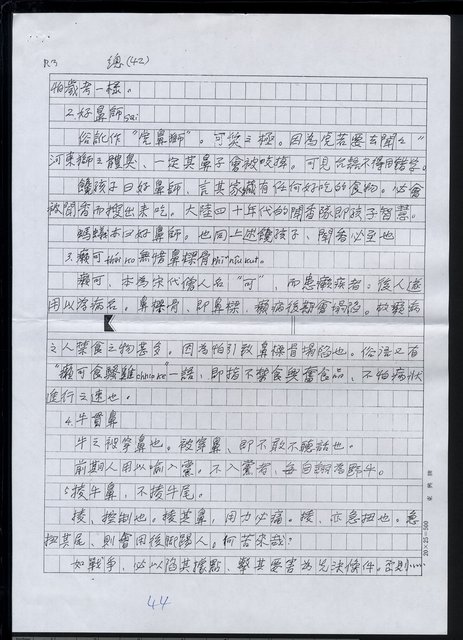 R3 總(42)
怕歲考一樣。
2.好鼻師sai
俗訛作“虎鼻獅”。可笑之極。因為虎若要去聞之“
河東獅之體臭、一定其鼻子會被咬掉。可見
饞孩子曰好鼻師、言其家藏有任何好吃的食物。必會
被聞香而搜出來吃。大陸四十年代的聞香隊即孩子智慧。
螞蟻亦曰好鼻師。也同上述饞孩子、聞香必至也
3.癩可thái ko無惜鼻樑骨phīⁿ niû kut.
癩可、本為宋代僧人名“可”、而患癩疾者。後人逕
用以為病名。鼻樑骨、即鼻樑、癩病後期會塌陷。故癩病
之人禁食之物甚多。因為怕引致鼻樑骨塌陷也。俗語又有
“癩可食鵤雞chhio ke”一語、即指不禁食興奮食品、不怕病狀
進行之速也。
4.牛貫鼻
牛之被穿鼻也。被穿鼻、即不敢不聽話也。
前期人用以喻入黨。不入黨者、每自詡為野牛。
5.捘牛鼻、不捘牛尾。
捘、控制也。捘其鼻、用力必痛。捘、亦急扭也。急
扭其尾、則會用後腳踢人。何苦來哉？
如戰爭、必以陷其據點、擊其要害為先決條件。否則……
20×25=500
44